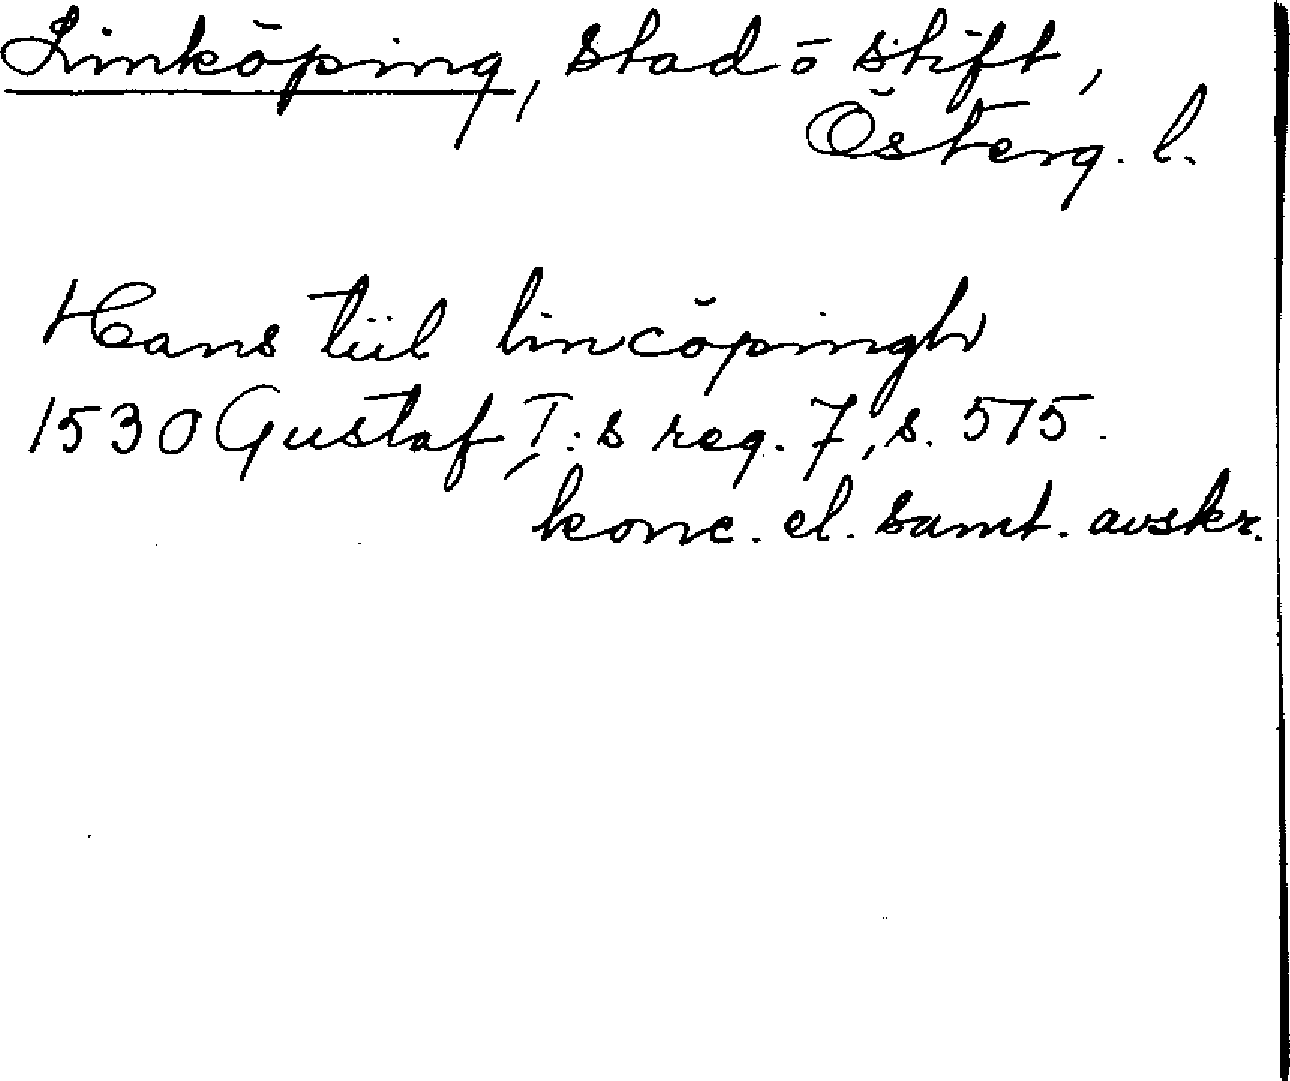 Linköping, stad o stift,
Österg. l.
Hans tiil lincöpingh
1530 Gustaf I:s reg. 7, s. 575.
konc. el. samt. avskr.